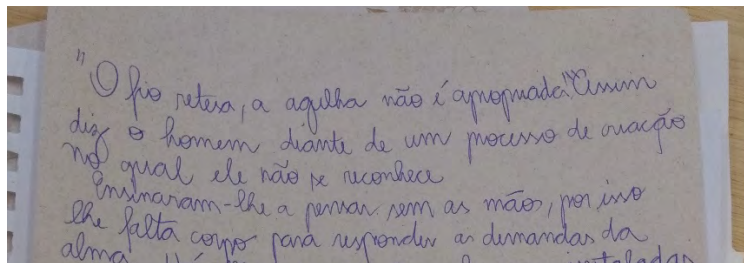 "O fio retesa, a agulha não é apropriada". Assim
diz o homem diante de um processo de criação
no qual ele não se reconhece
Ensinaram-lhe a pensar sem as mãos, por isso
lhe falta corpo para responder as demandas da
alma